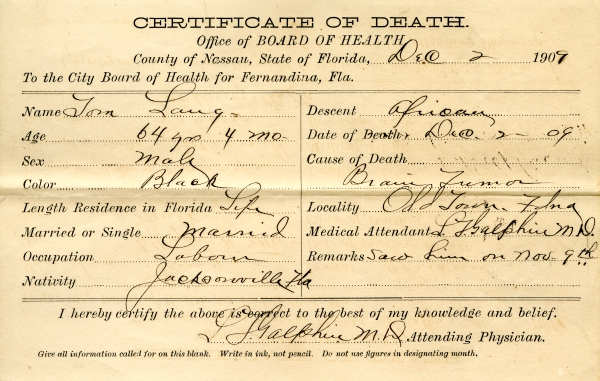 CERTIFICATE OF DEATH.
Office of BOARD OF HEALTH
County of Nassau, State of Florida, Dec 2 1909
To the City Board of Health for Fernandina, Fla.
Name Tom Lang
Age 64 yrs 4 mo.
Sex Male
Color Black
Length Residence in Florida Life
Married or Single Married
Occupation Labor
Nativity Jacksonville Fla
Descent African
Date of Death, Dec 2 - 09
Cause of Death
Brain Tumor
Locality Old Town Fdna
Medical Attendant L. Galphin M.D.
Remarks Saw him on Nov. 9th
I hereby certify the above is correct to the best of my knowledge and belief.
L Galphin M.D. Attending Physician.
Give all information called for on this blank. Write in ink, not pencil. Do not use figures in designating month.